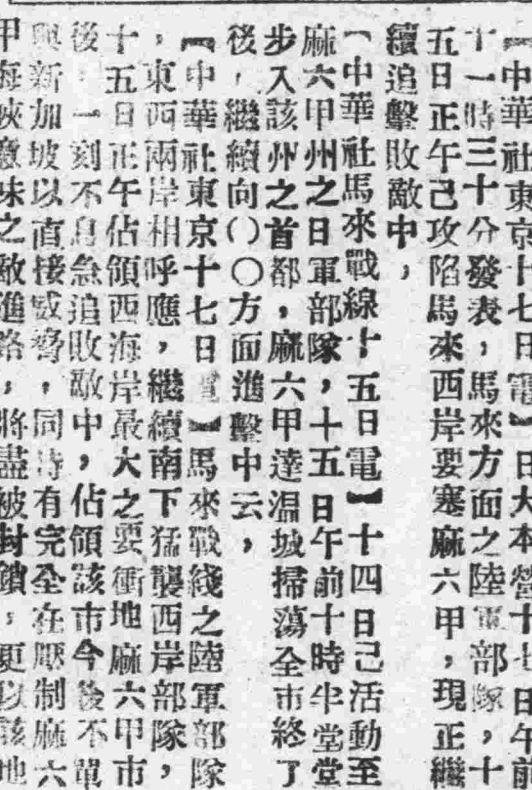 【中華社東京十七日電】日大本營十七日午前
十一時三十分發表，馬來方面之陸軍部隊，十
五日正午己攻陷馬來西岸要塞麻六甲，現正繼
續追擊敗敵中，
【中華社馬來戰線十五日電】十四日己活動至
麻六甲州之日軍部隊，十五日午前十時半堂堂
步入該州之首都，麻六甲達温城掃蕩全市終了
後，繼續向〇〇方面進擊中云，
【中華社東京十七日電】馬來戰綫之陸軍部隊
，東西兩岸相呼應，繼續南下猛襲西岸部隊，
十五日正午佔領西海岸最大之要衝地麻六甲市
後，一刻不息急追敗敵中，佔領該市今後不單
與新加坡以直接威脅，同時有完全在壓制麻六
甲海峽意味之敵進路，將盡被封鎖，更以該地